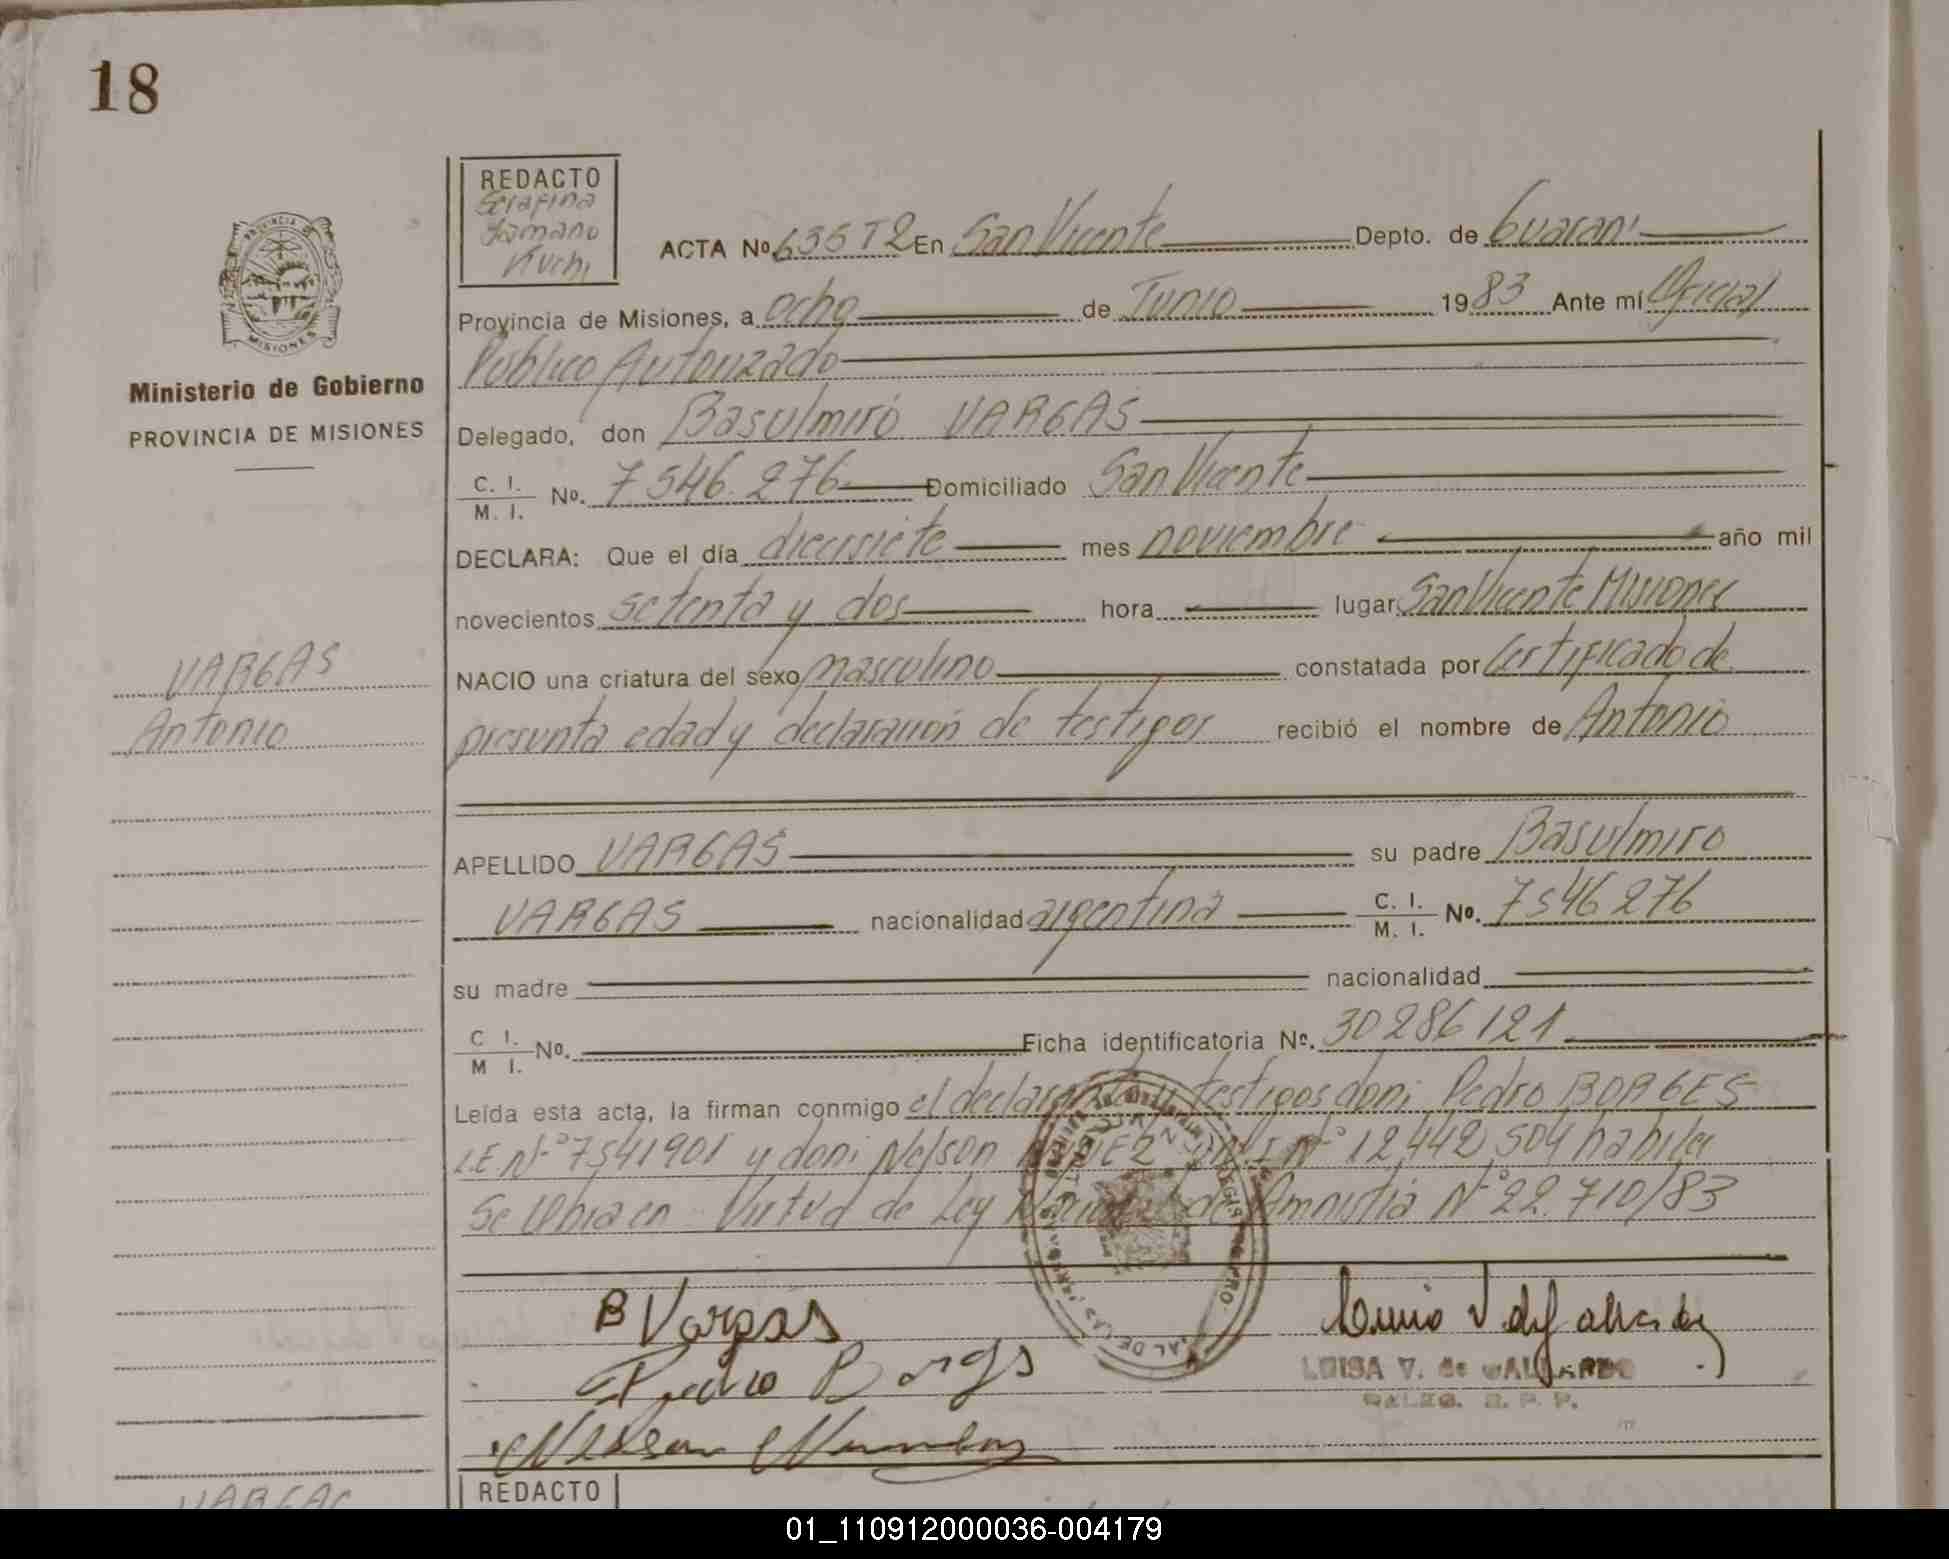 18
REDACTO
Serafina
Kuchi
PROVINCIA DE
MISIONES
Ministerio de Gobierno
PROVINCIA DE MISIONES
VARGAS
Antonio
ACTA Nº 635 T2 En San Vicente Depto. de Guaraní
Provincia de Misiones, a ocho de Junio 1983 Ante mí Oficial
Público Autorizado
Delegado, don Basulmiro VARGAS
C. I. / M. I. Nº. 7.546.276 Domiciliado San Vicente
DECLARA: Que el día diecisiete mes noviembre año mil
novecientos setenta y dos hora lugar San Vicente Misiones
NACIO una criatura del sexo masculino constatada por Certificado de
presunta edad y declaración de testigos recibió el nombre de Antonio
APELLIDO VARGAS su padre Basulmiro
VARGAS nacionalidad argentina C. I. / M. I. Nº. 7546276
su madre nacionalidad
C I. / M I. Nº. Ficha identificatoria Nº. 30286121
Leída esta acta, la firman conmigo el declarante y testigos don: Pedro BORGES
L.E Nº 7541901 y don: Nelson Nº 12.442.504 habiles
Se labra en Virtud de Ley Nacional de Amnistia Nº 22.710/83
B Vargas
Pedro Borges
LUISA V. de GALLARDO
REDACTO
VARGAS
01_110912000036-004179